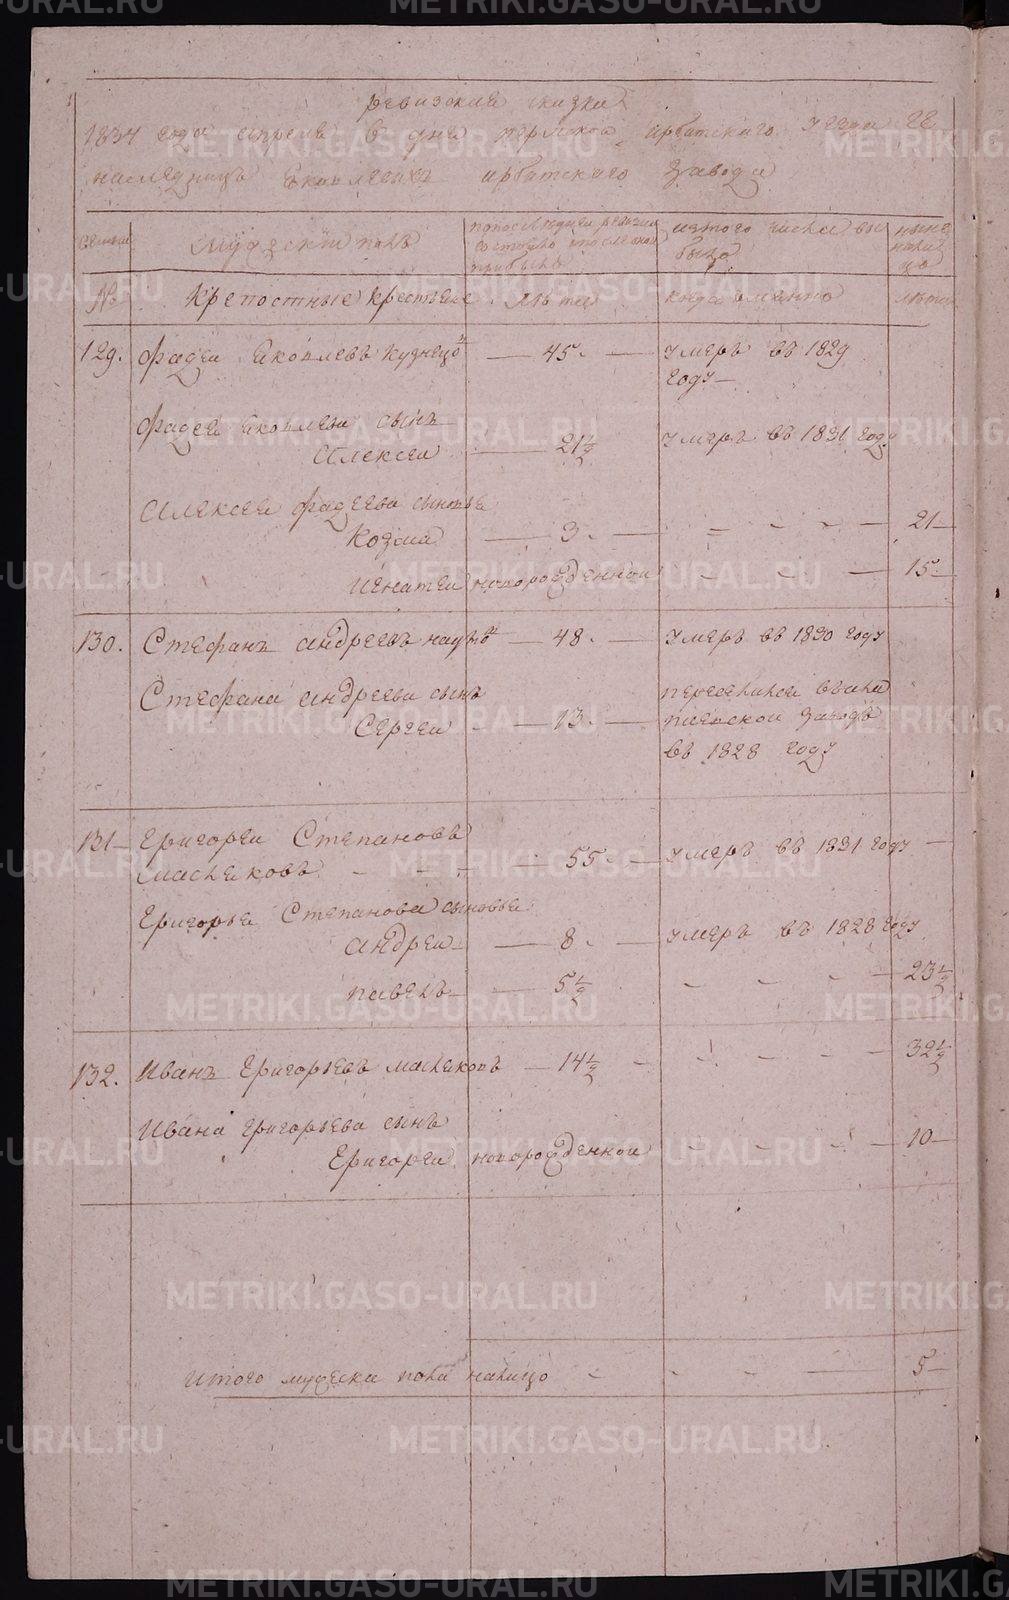 ревизская сказка
1834 года апреля 8 дня пермской ирбитскаго уезда гг
наследницъ Яковлевыхъ ирбитскаго завода
семьи
Мужескiй полъ
попоследней ревизии состояло ипосле оной прибыло
изтого числа выбыло
ныне налицо
№
Крепостные Крестьяне
лета
когда именно
лета
129. фадей Яковлевъ Кузнецовъ — 45. — умеръ въ 1829 году —
фадея Яковлева сынъ
Алексей — 21½ умеръ въ 1831 году
Алексея фадеева сыновья
Козма — 3. — 21 —
игнатей новорожденной — 15 —
130. Стефанъ андреевъ — 48. — умеръ въ 1830 году
Стефана андреева сынъ
Сергей — 13. — 
заводъ
въ 1828 году
131 — григорей Степановъ
Маслековъ — 55. — умеръ въ 1831 году —
григорья Степанова сыновья
андрей — 8. — умеръ въ 1828 году
павелъ — 5½ — 23½
132. Иванъ григорьевъ маслековъ — 14½ — 32½
Ивана григорьева сынъ
григорей новорожденной — 10 —
итого мужеска пола налицо — 5 —
METRIKI.GASO-URAL.RU